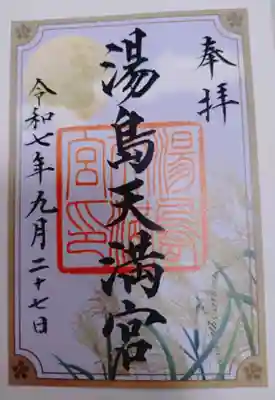 奉拝
湯島天満宮
令和七年九月二十七日
湯島天満宮印